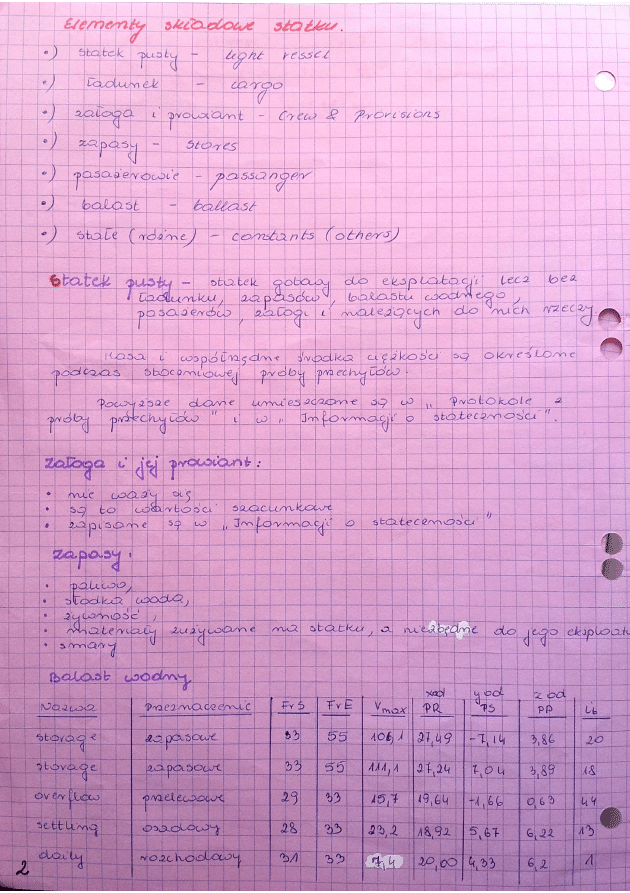 Elementy składowe statku.
•) statek pusty – light vessel
•) ładunek – cargo
•) załoga i prowiant – Crew & Provisions
•) zapasy – stores
•) pasażerowie – passanger
•) balast – ballast
•) stałe (różne) – constants (others)
Statek pusty – statek gotowy do eksplatacji lecz bez
ładunku, zapasów, balastu wodnego,
pasażerów, załogi i należących do nich rzeczy.
Masa i współrzędne środka ciężkości są określone
podczas stoczniowej próby przechyłów.
Powyższe dane umieszczone są w „Protokole z
próby przechyłów" i w „Informacji o stateczności".
Załoga i jej prowiant:
• nie waży się
• są to wartości szacunkowe
• zapisane są w „Informacji o stateczności"
Zapasy:
• paliwo,
• słodka woda,
• żywność,
• materiały zużywane na statku, a niezbędne do jego eksploat
• smary
Balast wodny
Nazwa Przeznaczenie FrS FrE Vmax xod PR y od PS z od PP ib
storage zapasowe 33 55 106,1 27,49 -7,14 3,86 20
storage zapasowe 33 55 111,1 27,24 7,04 3,89 18
overflow przelewowe 29 33 15,7 19,64 -1,66 0,63 44
settling osadowy 28 33 23,2 18,92 5,67 6,22 13
daily rozchodowy 31 33 7,4 20,00 4,33 6,2 1
2